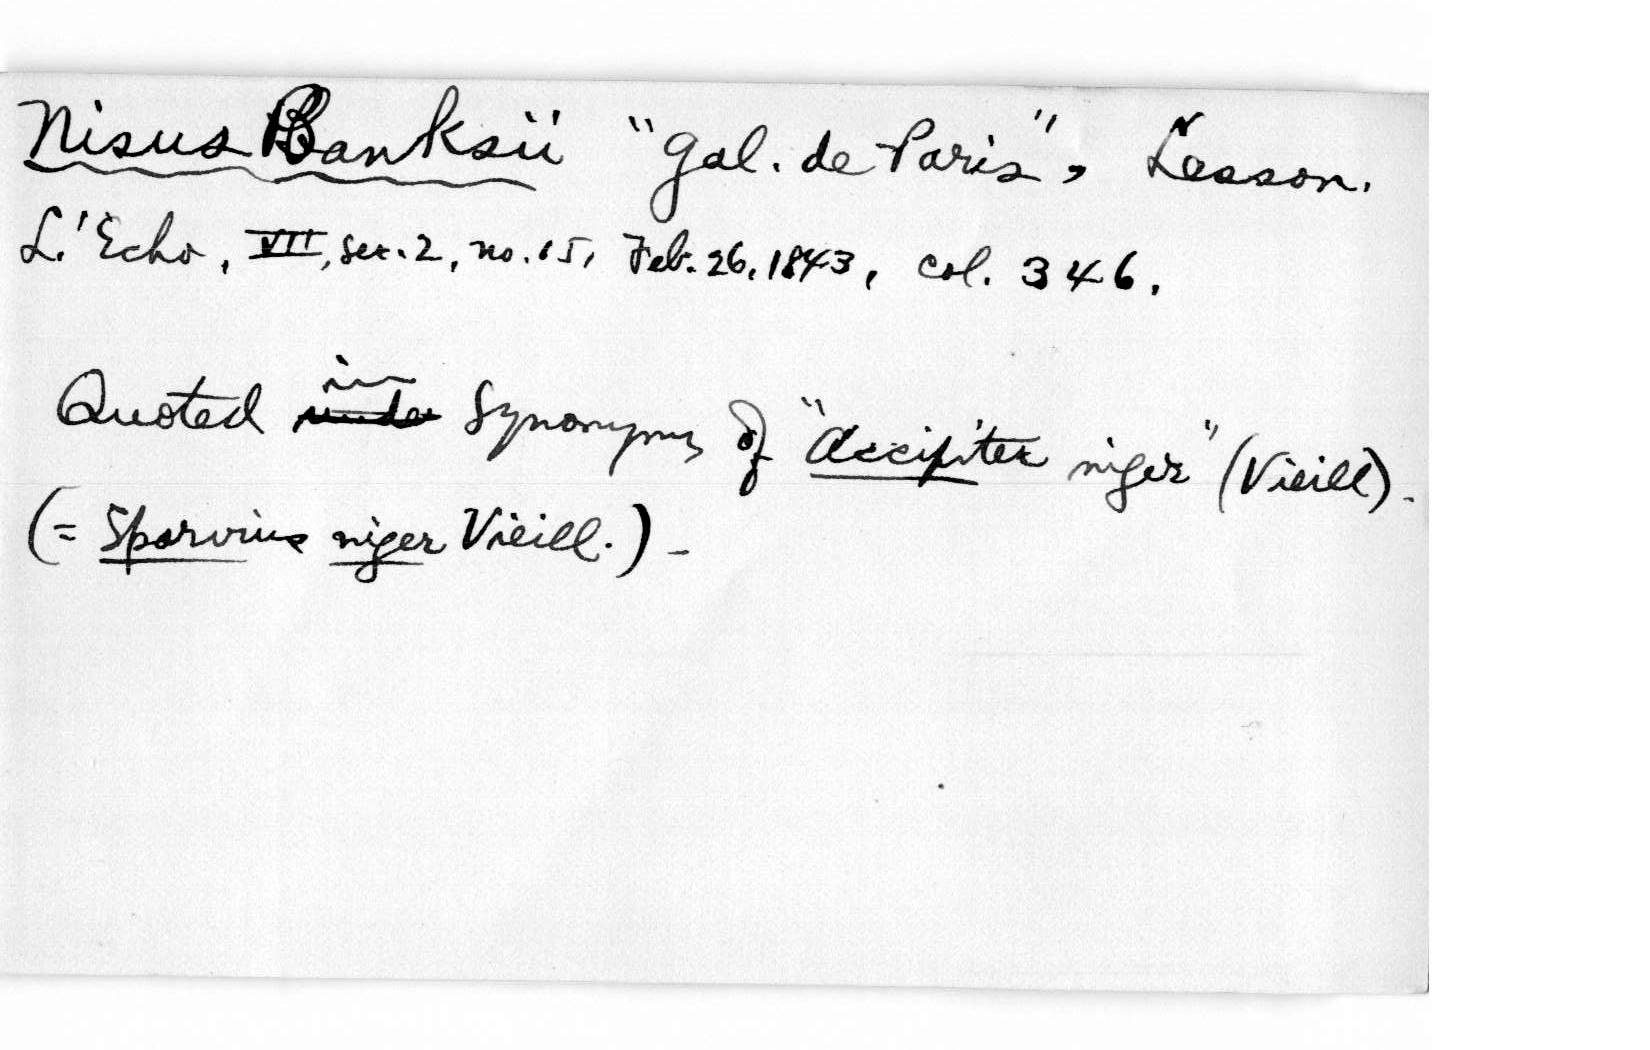 Nisus Banksii "Gal. de Paris", Lesson.
L.'Echo, VII, ser. 2, no. 15, Feb. 26, 1843, col. 346.
Quoted in synonymy of "Accipiter niger" (Vieill).
(= Sparvius niger Vieill.) -